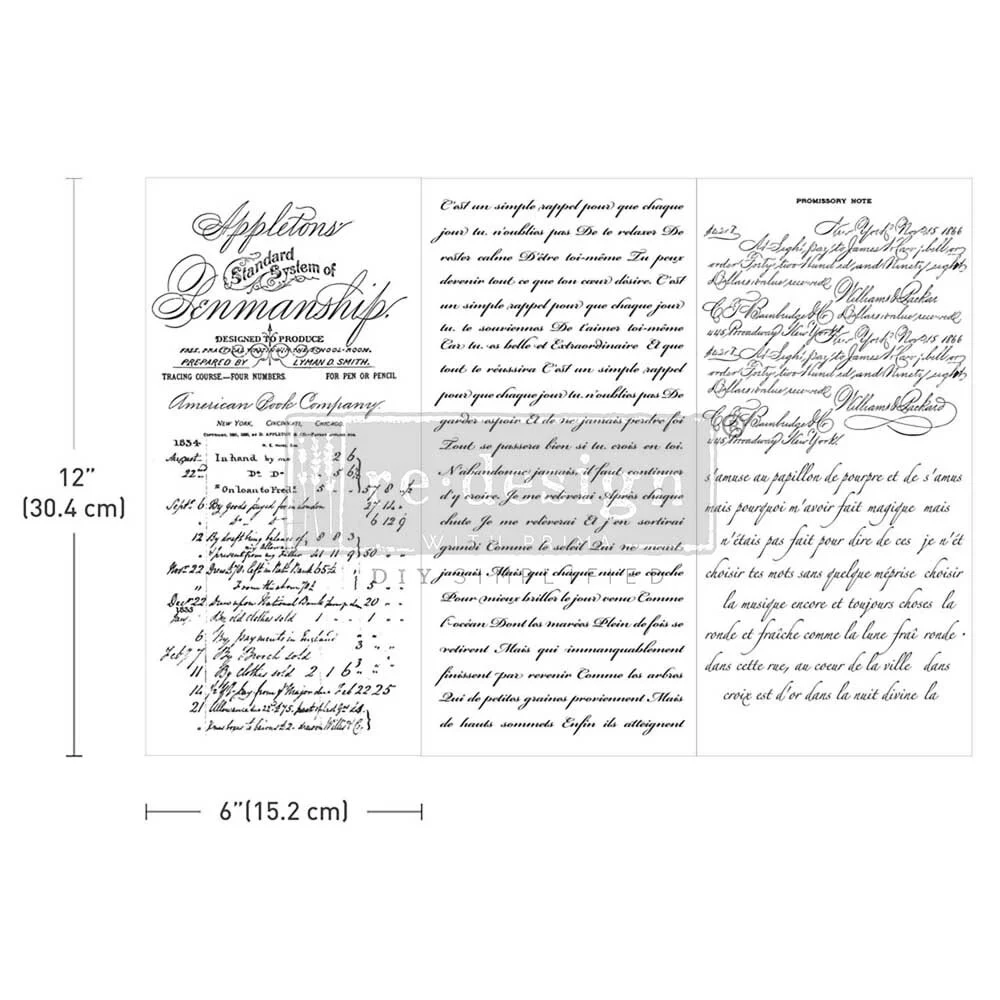 Appletons'
Standard
System of
Penmanship.
DESIGNED TO PRODUCE
PREPARED BY LYMAN D. SMITH.
TRACING COURSE—FOUR NUMBERS. FOR PEN OR PENCIL
American Book Company.
NEW YORK, CINCINNATI, CHICAGO.
1834
August In hand by me 2 6
22nd Do Do 5 6
"On loan to Fred 5 57 8
Sept 6 By goods payed for in London 27 14
6 12 9
12 By draft being balance of 8 8 3
present from my Father 41 11 9 50
Nov 22
From the above 5
Decr 22 Drew upon National Bank 20
1835
Jany Do old clothes sold 1 1
6 By payments in England
Feb 7 By Brooch sold
11 By clothes sold 2 1 6 3
14 pay from Major due Feb 22 25
21 Allowance
C'est un simple rappel pour que chaque
jour tu n'oublies pas De te relaxer De
rester calme D'être toi-même Tu peux
devenir tout ce que ton cœur désire. C'est
un simple rappel pour que chaque jour
tu te souviennes De t'aimer toi-même
Car tu es belle et Extraordinaire Et que
tout te réussira C'est un simple rappel
pour que chaque jour tu n'oublies pas De
garder espoir Et de ne jamais perdre foi
Tout se passera bien si tu crois en toi.
N'abandonne jamais, il faut continuer
d'y croire. Je me relèverai Après chaque
chute Je me relèverai Et j'en sortirai
grandi Comme le soleil Qui ne meurt
jamais Mais qui chaque nuit se couche
Pour mieux briller le jour venu Comme
l'océan Dont les marées Plein de fois se
retirent Mais qui immanquablement
finissent par revenir Comme les arbres
Qui de petites graines proviennent Mais
de hauts sommets Enfin ils atteignent
PROMISSORY NOTE
New York Nov 15 1866
At Sight, pay to James W Carr, bell or
order Forty two Hundred, and Ninety eight
Dollars value received
Williams & Packard
C F Bainbridge & Co Dollars value received
445 Broadway New York New York Nov 15 1866
At Sight, pay to James W Carr, bell or
order Forty two Hundred, and Ninety eight
Dollars value received
Williams & Packard
C F Bainbridge & Co
445 Broadway New York
s'amuse au papillon de pourpre et de s'amus
mais pourquoi m'avoir fait magique mais
n'étais pas fait pour dire de ces je n'ét
choisir tes mots sans quelque méprise choisir
la musique encore et toujours choses la
ronde et fraîche comme la lune fraî ronde ·
dans cette rue, au coeur de la ville dans
croix est d'or dans la nuit divine la
re·design
WITH PRIMA
DIY SIMPLIFIED
12"
(30.4 cm)
6"(15.2 cm)